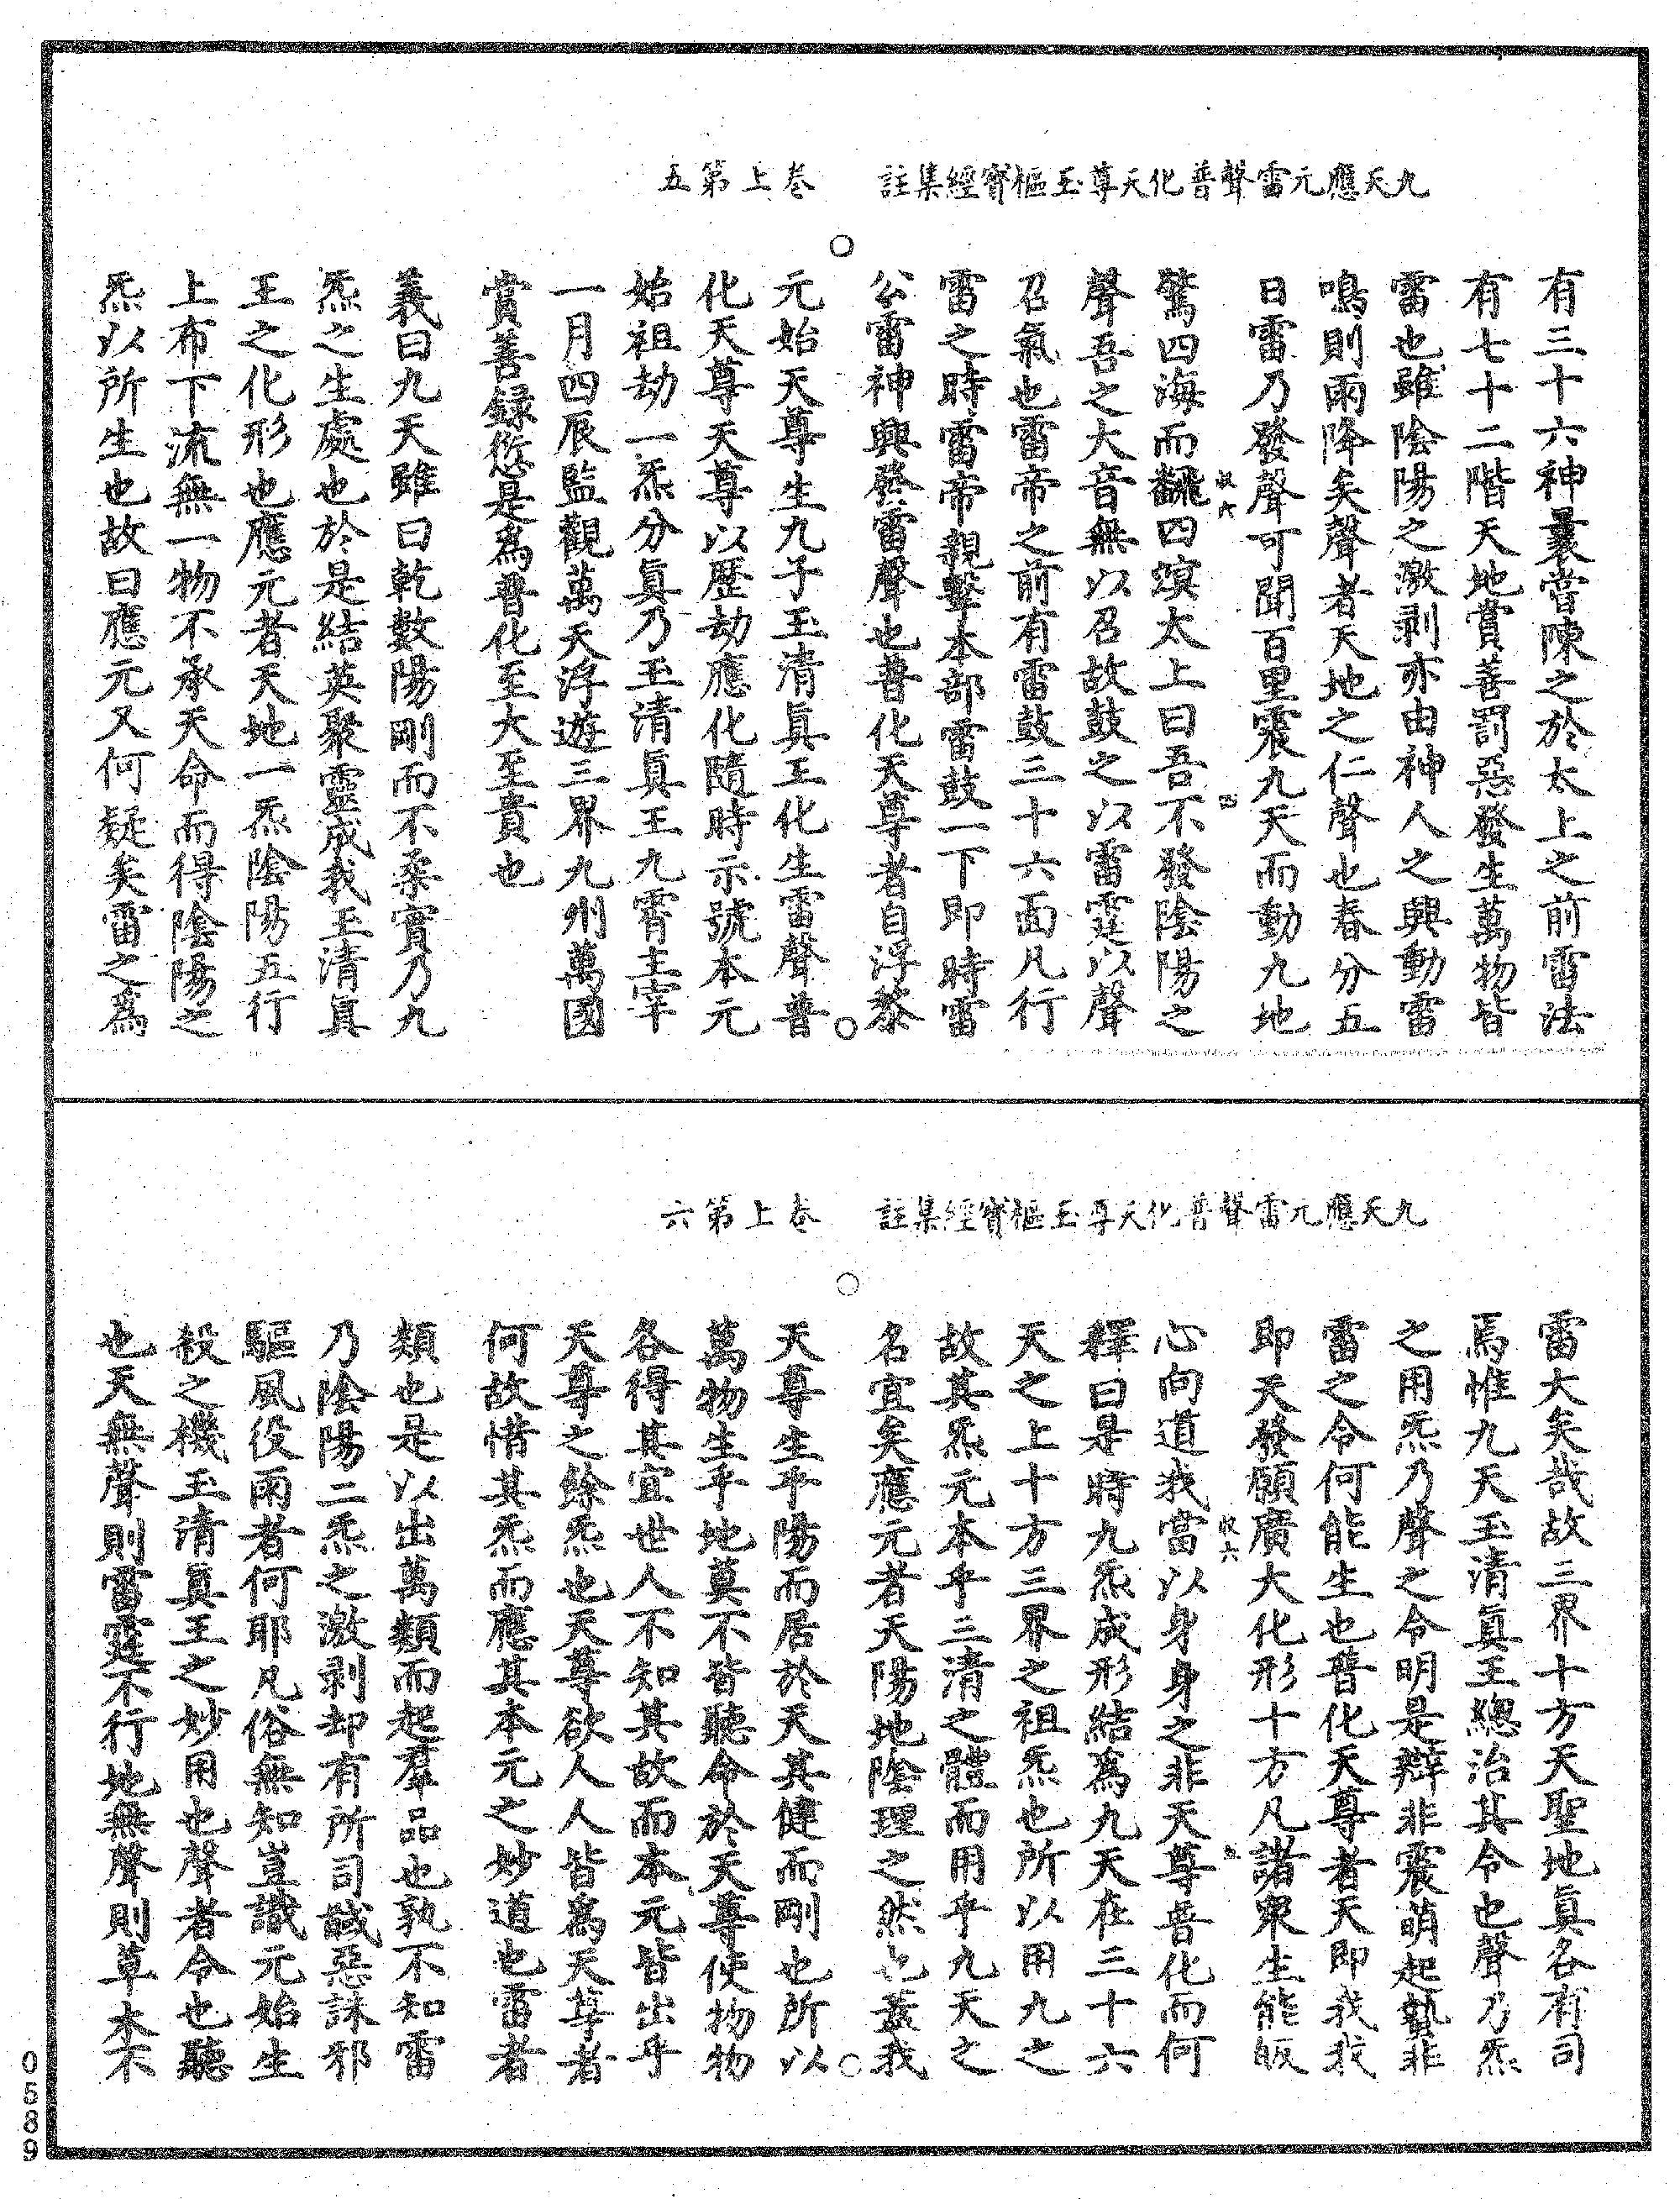 九天應元雷聲普化天尊玉樞寶經集註 卷上第五
有三十六神曩嘗陳之於太上之前雷法
有七十二階天地賞善罰惡發生萬物皆
雷也雖陰陽之激剥亦由神人之興動雷
鳴則雨降矣聲者天地之仁聲也春分五
日雷乃發聲可聞百里震九天而動九地
驚四海而翻四溟太上曰吾不發陰陽之
聲吾之大音無以召故鼓之以雷霆以聲
召氣也雷帝之前有雷鼓三十六面凡行
雷之時雷帝親擊本部雷鼓一下即時雷
公雷神興發雷聲也普化天尊者自浮黎
元始天尊生九子玉清真王化生雷聲普
化天尊天尊以歷劫應化隨時示號本元
始祖劫一炁分真乃玉清真王九霄主宰
一月四辰監觀萬天浮遊三界九州萬國
賞善録愆是為普化至大至貴也
義曰九天雖曰乾數陽剛而不柔實乃九
炁之生處也於是結英聚靈成我玉清真
王之化形也應元者天地一炁陰陽五行
上布下流無一物不承天命而得陰陽之
炁以所生也故曰應元又何疑矣雷之為
九天應元雷聲普化天尊玉樞寶經集註 卷上第六
雷大矣哉故三界十方天聖地真各有司
焉惟九天玉清真王總治其令也聲乃炁
之用炁乃聲之令明是辯非震萌起蟄非
雷之令何能生也普化天尊者天即我我
即天發願廣大化形十方凡諸衆生能皈
心向道我當以身身之非天尊普化而何
釋曰是時九炁成形結為九天在三十六
天之上十方三界之祖炁也所以用九之
故其炁元本乎三清之體而用乎九天之
名宜矣應元者天陽地陰理之然也蓋我
天尊生乎陽而居於天其健而剛也所以
萬物生乎地莫不皆聽命於天尊使物物
各得其宜世人不知其故而本元皆出乎
天尊之餘炁也天尊欲人人皆為天尊者
何故惜其炁而應其本元之妙道也雷者
類也是以出萬類而起羣品也孰不知雷
乃陰陽二炁之激剥却有所司馘惡誅邪
驅風役雨者何耶凡俗無知豈識元始生
殺之機玉清真王之妙用也聲者令也聽
也天無聲則雷霆不行地無聲則草木不
0589